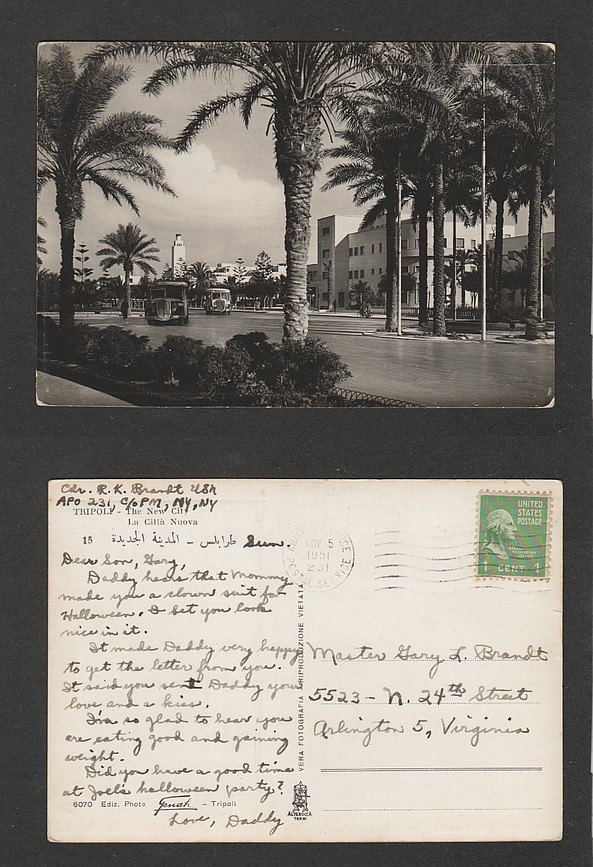 Cdr. R. K. Brandt USN
APO 231, C/o PM, NY, NY
TRIPOLI - The New City
La Città Nuova
15 طرابلس - المدينة الجديدة
Sun.
Dear Son, Gary,
Daddy hears that Mommy
made you a clown suit for
Halloween. I bet you look
nice in it.
It made Daddy very happy
to get the letter from you.
It said you sent Daddy your
love and a kiss.
I'm so glad to hear you
are eating good and gaining
weight.
Did you have a good time
at Joel's halloween party?
Love, Daddy
6070 Ediz. Photo - Tripoli
VERA FOTOGRAFIA RIPRODUZIONE VIETATA
ALTEROCCA
TERNI
NOV 5
1951
231
SERVICE
UNITED
STATES
POSTAGE
1 CENT 1
Master Gary L. Brandt
5523 - N. 24th Street
Arlington 5, Virginia